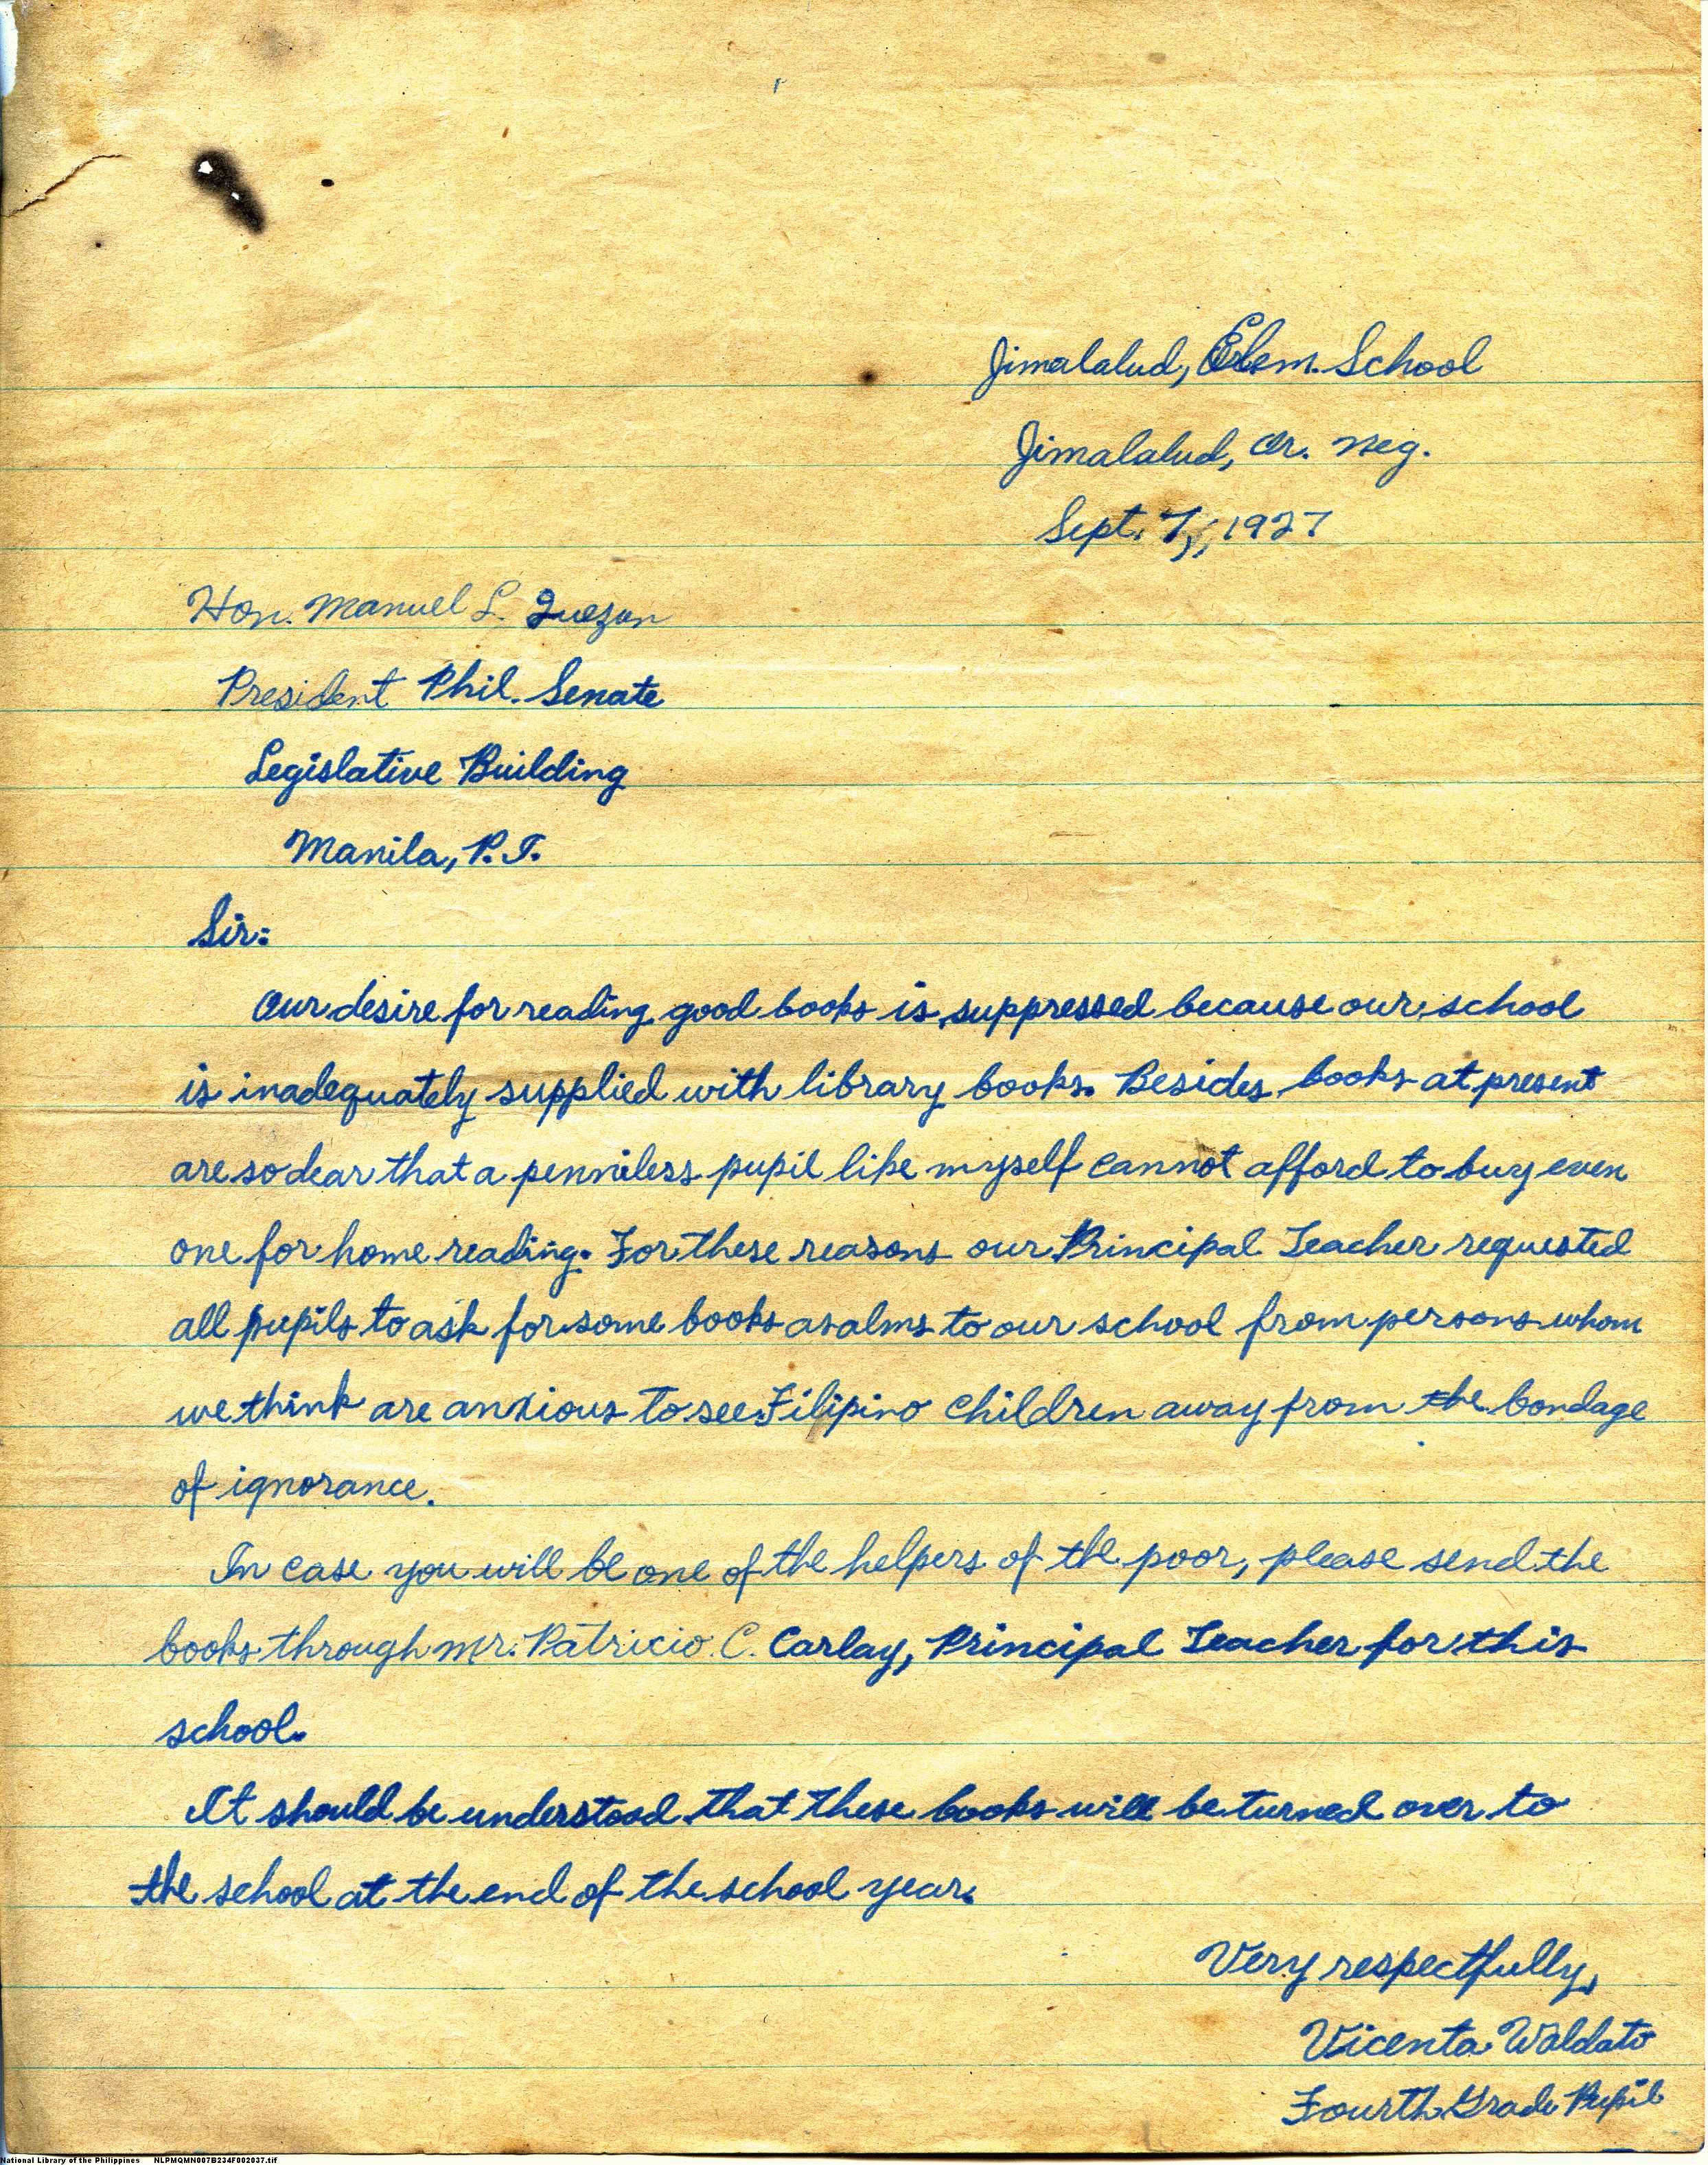 Jimalalud, Elem. School
Jimalalud, Or. Neg.
Sept. 7, 1927
Hon. Manuel L. Quezon
President Phil. Senate
Legislative Building
Manila, P. I.
Sir:
Our desire for reading good books is suppressed because our school
is inadequately supplied with library books. Besides, books at present
are so dear that a penniless pupil like myself cannot afford to buy even
one for home reading. For these reasons our Principal Teacher requested
all pupils to ask for some books as alms to our school from persons whom
we think are anxious to see Filipino children away from the bondage
of ignorance.
In case you will be one of the helpers of the poor, please send the
books through Mr. Patricio C. Carlay, Principal Teacher for this
school.
It should be understood that these books will be turned over to
the school at the end of the school year.
Very respectfully,
Vicenta Waldato
Fourth Grade Pupil
National Library of the Philippines NLPMQMN007B234F002037.tif